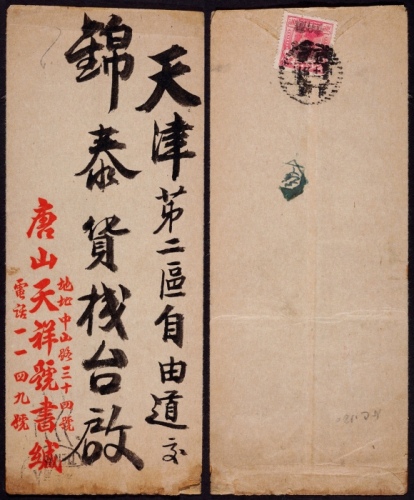 天津第二區自由道交
錦泰貨栈台啟
地址中山路三十四號
唐山天祥號書緘
電話一一四九號